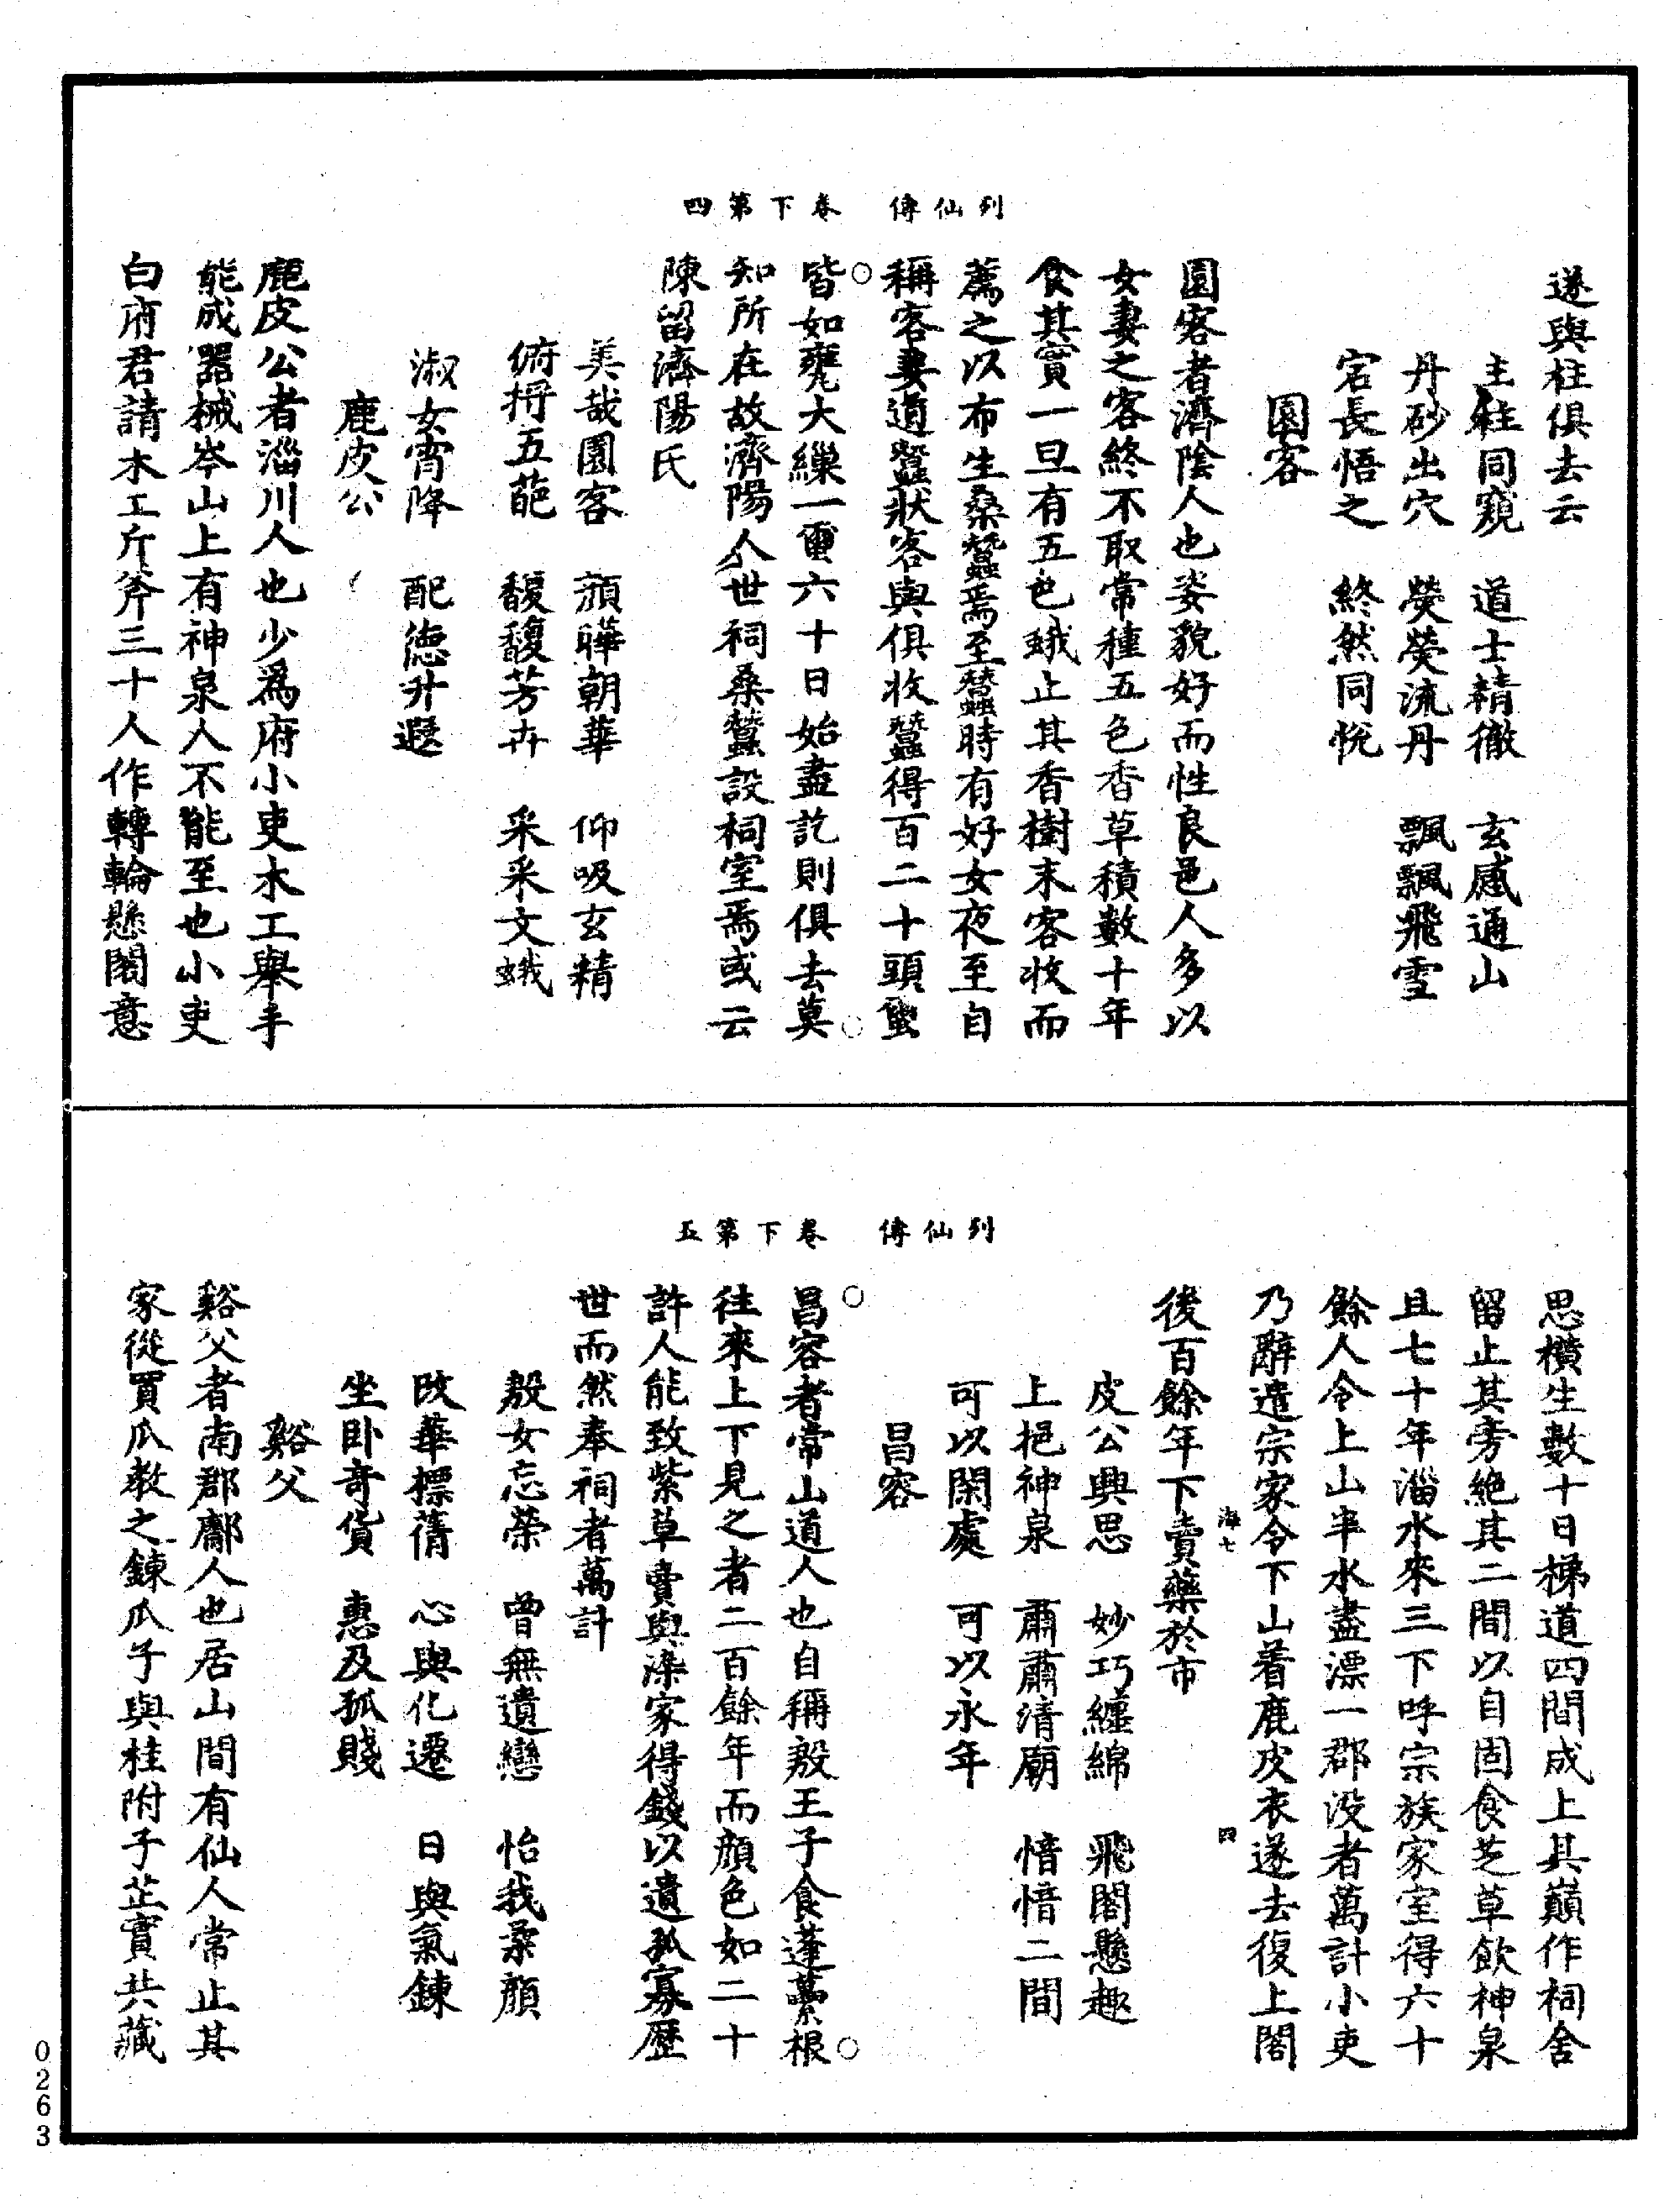 列仙傳　卷下第四
遂與柱俱去云
主柱同窺　道士精徹　玄感通山
丹砂出穴　熒熒流丹　飄飄飛雪
宕長悟之　終然同悅
園客
園客者濟陰人也姿貌好而性良邑人多以
女妻之客終不取常種五色香草積數十年
食其實一旦有五色蛾止其香樹末客收而
薦之以布生桑蠶焉至蠶時有好女夜至自
稱客妻道蠶狀客與俱收蠶得百二十頭蠒
皆如甕大繅一蠒六十日始盡訖則俱去莫
知所在故濟陽人世祠桑蠶設祠室焉或云
陳留濟陽氏
美哉園客　顏曄朝華　仰吸玄精
俯捋五葩　馥馥芳卉　采采文蛾
淑女宵降　配德升遐
鹿皮公
鹿皮公者淄川人也少爲府小吏木工舉手
能成器械岑山上有神泉人不能至也小吏
白府君請木工斤斧三十人作轉輪懸閣意
列仙傳　卷下第五
思橫生數十日梯道四間成上其巔作祠舍
留止其旁絶其二間以自固食芝草飲神泉
且七十年淄水來三下呼宗族家室得六十
餘人令上山半水盡漂一郡没者萬計小吏
乃辭遣宗家令下山着鹿皮衣遂去復上閣
海七　四
後百餘年下賣藥於市
皮公興思　妙巧纏綿　飛閣懸趣
上挹神泉　肅肅清廟　愔愔二間
可以閑處　可以永年
昌容
昌容者常山道人也自稱殷王子食蓬虆根
往來上下見之者二百餘年而顏色如二十
許人能致紫草賣與染家得錢以遺孤寡歷
世而然奉祠者萬計
殷女忘榮　曾無遺戀　怡我柔顏
改華標蒨　心與化遷　日與氣鍊
坐卧奇貨　惠及孤賤
谿父
谿父者南郡鄘人也居山間有仙人常止其
家從買瓜教之鍊瓜子與桂附子芷實共藏
0263